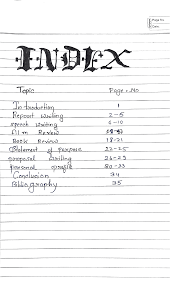 Page No.
Date
INDEX
Topic Page. No
Introduction 1
Report writing 2-5
speech writing 6-10
Film Review
Book Review 18-21
Statement of purpose 22-25
proposal writing 26-29
Personal profile 30-33
Conclusion 34
Bibliography 35